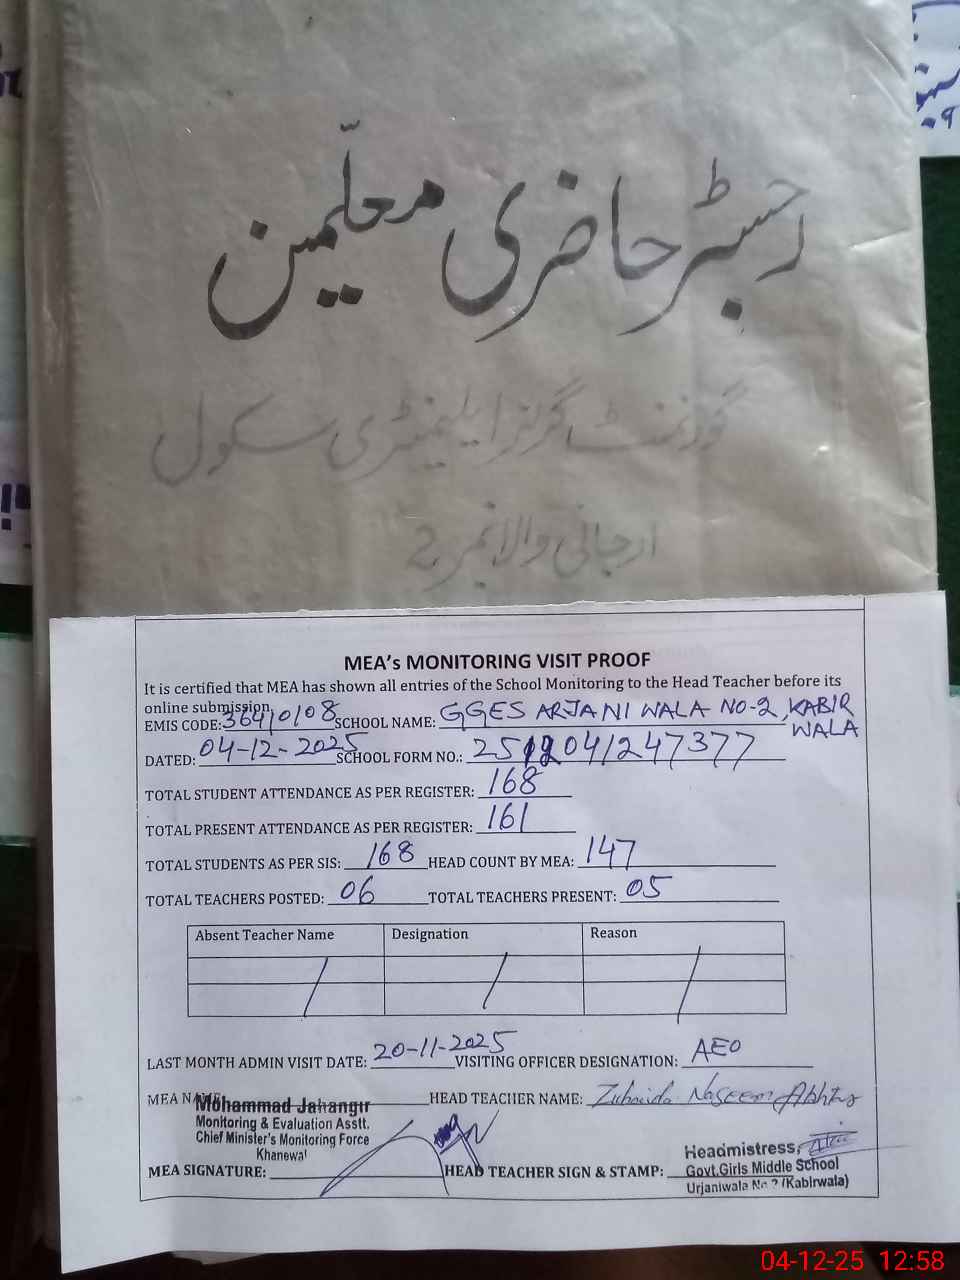 رجسٹر حاضری معلّمین
گورنمنٹ گرلز ایلیمنٹری سکول
ارجانی والا نمبر 2
MEA's MONITORING VISIT PROOF
It is certified that MEA has shown all entries of the School Monitoring to the Head Teacher before its
online submission.
EMIS CODE: 36410108 SCHOOL NAME: GGES ARJANI WALA NO-2, KABIR WALA
DATED: 04-12-2025 SCHOOL FORM NO.: 2512041247377
TOTAL STUDENT ATTENDANCE AS PER REGISTER: 168
TOTAL PRESENT ATTENDANCE AS PER REGISTER: 161
TOTAL STUDENTS AS PER SIS: 168 HEAD COUNT BY MEA: 147
TOTAL TEACHERS POSTED: 06 TOTAL TEACHERS PRESENT: 05
Absent Teacher Name Designation Reason
LAST MONTH ADMIN VISIT DATE: 20-11-2025 VISITING OFFICER DESIGNATION: AEO
MEA NAME: HEAD TEACHER NAME: Zubaida Naseem Akhtar
Mohammad Jahangir
Monitoring & Evaluation Asstt.
Chief Minister's Monitoring Force
Khanewal
MEA SIGNATURE: HEAD TEACHER SIGN & STAMP:
Headmistress,
Govt.Girls Middle School
Urjaniwala No.2 (Kabirwala)
04-12-25 12:58